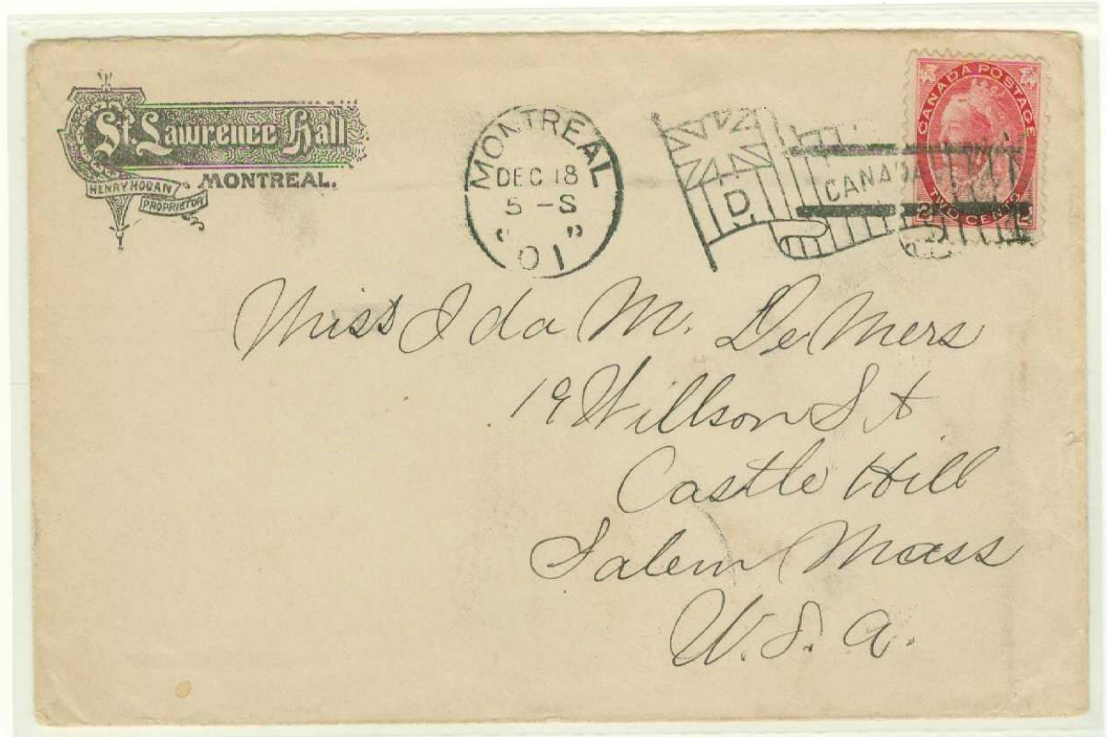 St. Lawrence Hall
HENRY HOGAN
PROPRIETOR
MONTREAL.
MONTREAL
DEC 18
5 - S
" "
01
D
CANADA
CANADA POSTAGE
2 TWO CENTS 2
Miss Ida M. DeMers
19 Willson St
Castle Hill
Salem Mass
U.S.A.